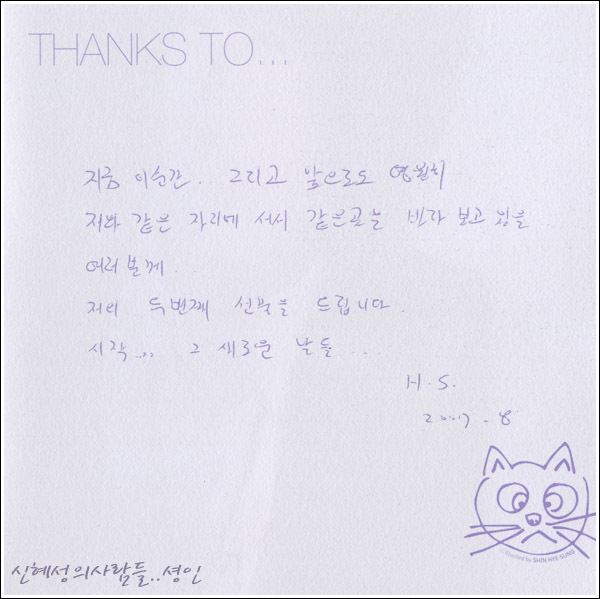 THANKS TO...
지금 이순간... 그리고 앞으로도 영원히
저와 같은 자리에 서서 같은곳을 바라 보고 있을
여러분께..
저의 두번째 선물을 드립니다.
시작.... 그 새로운 날들...
H.S.
2007.8
illustrated by SHIN HYE SUNG
신혜성의사람들..셩인